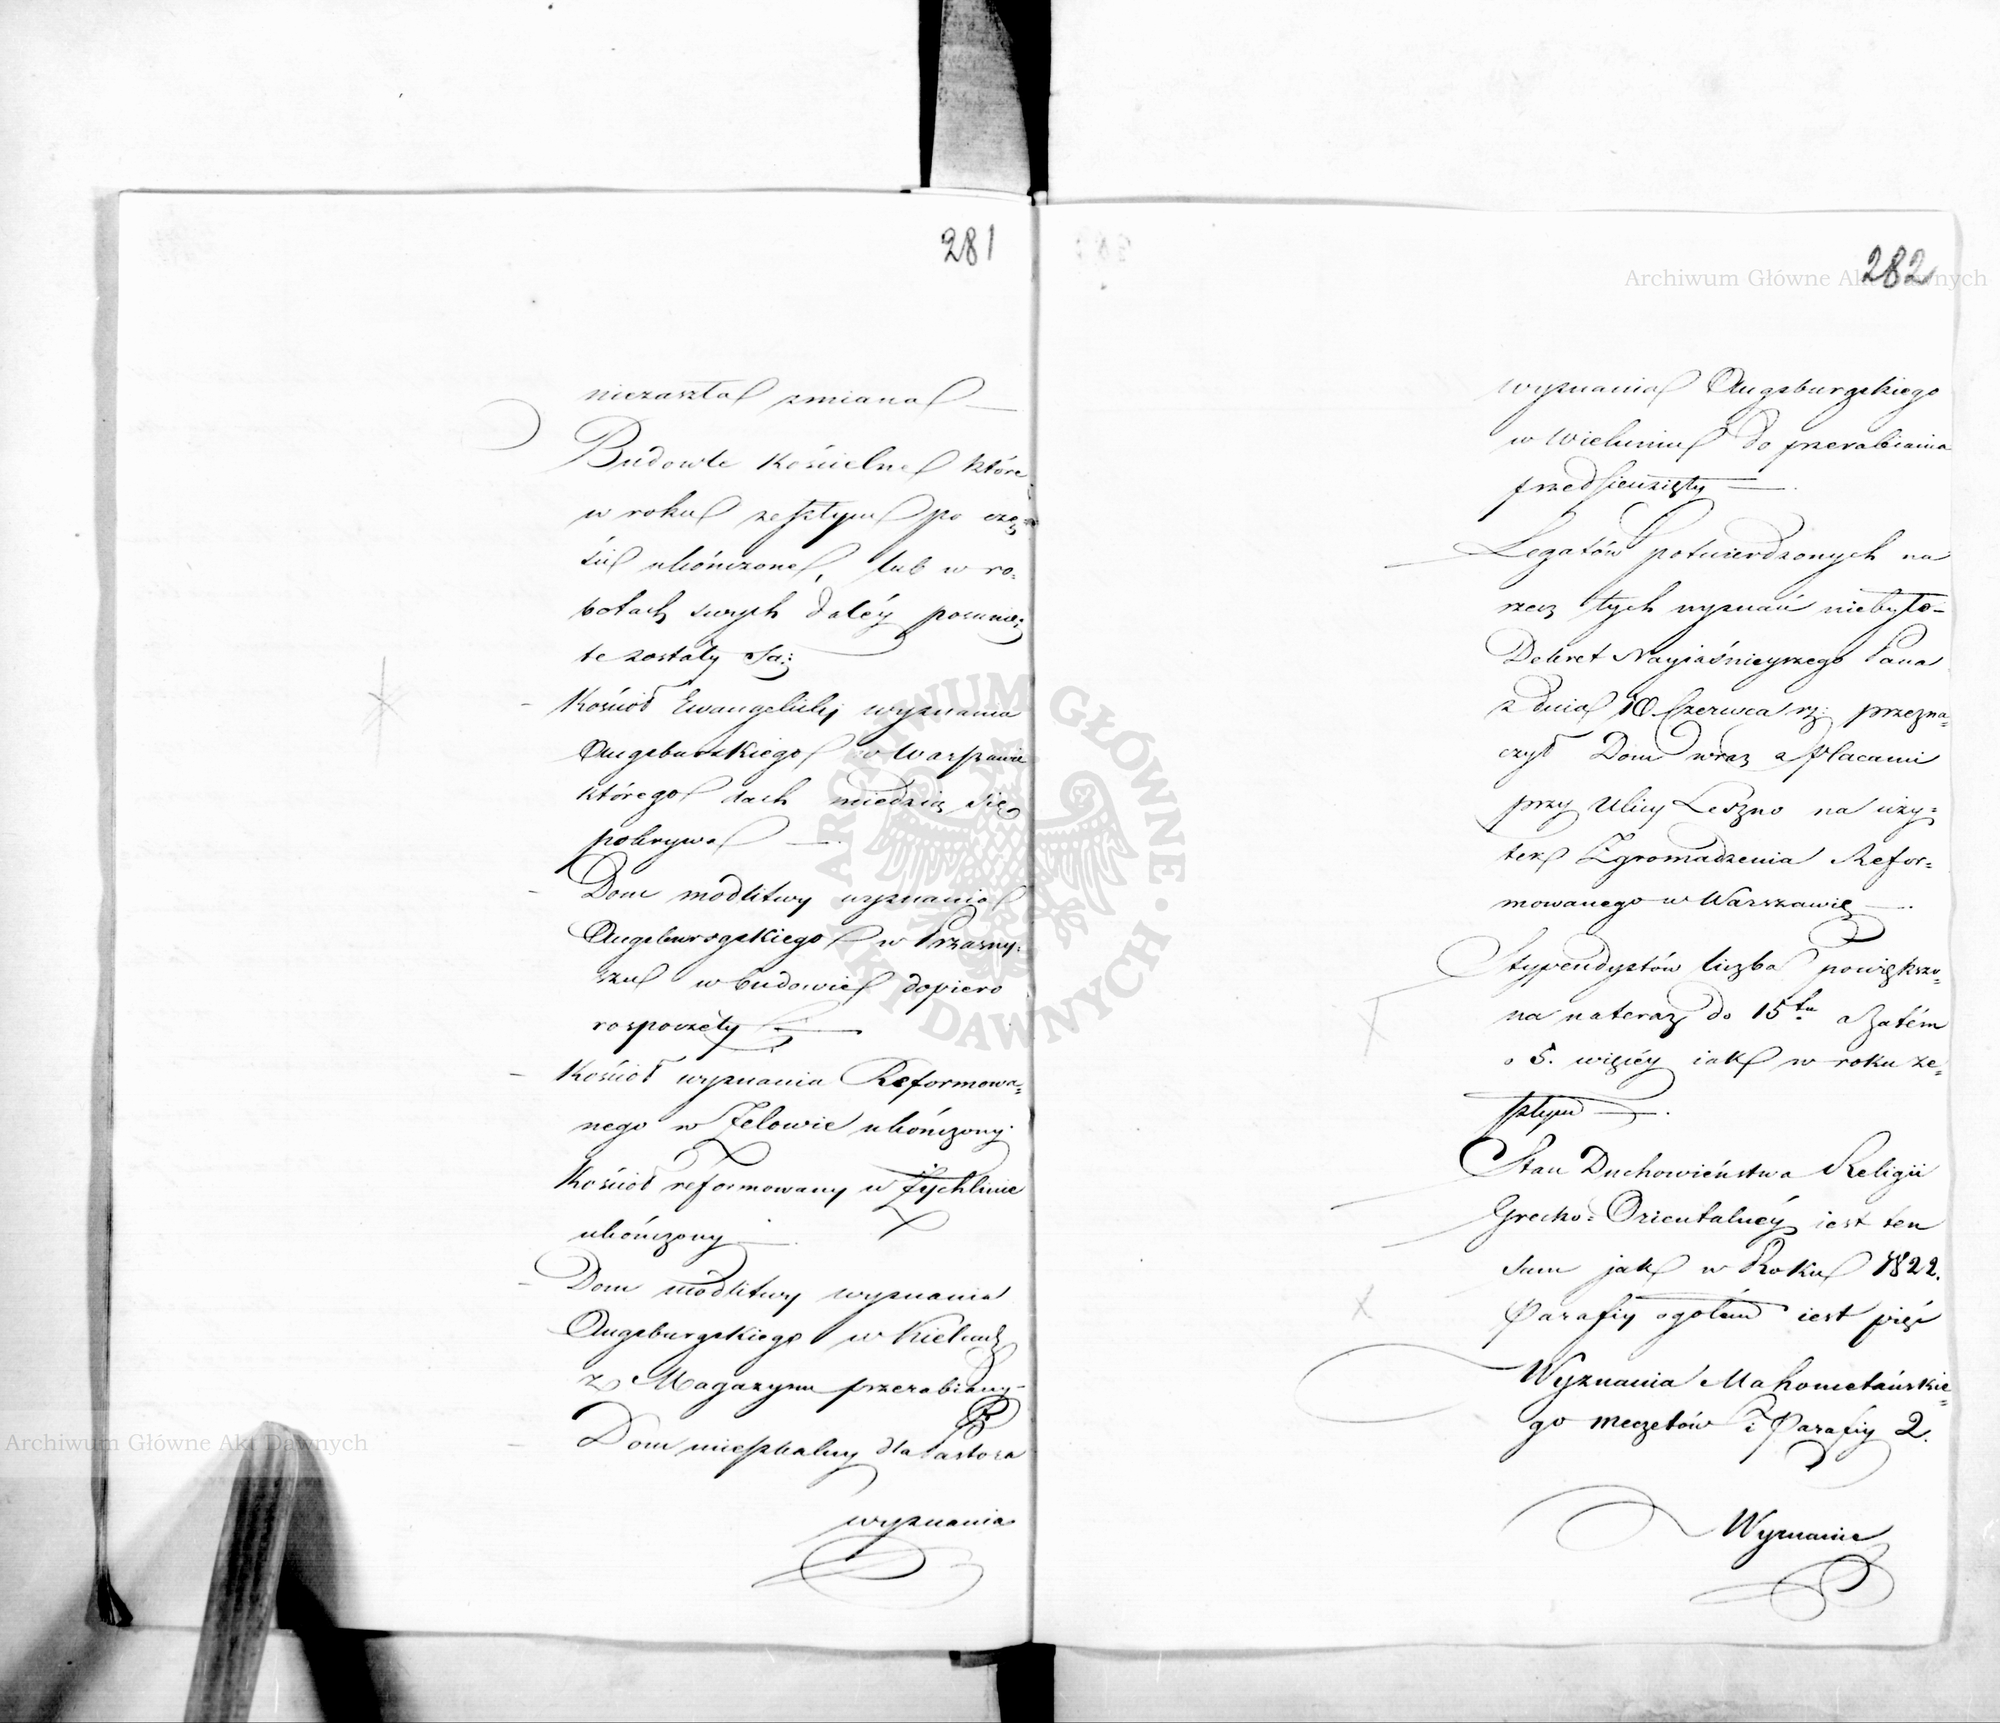 281
niezaszła zmiana
Budowle kościelne które
w roku zeszłym po czę=
ści ukończone, lub w ro=
botach swych daléy posunię=
te zostały są:
Kościoł Ewangelicki wyznania
Augsburskiego w Warszawie
którego dach miedzią się
pokrywa
Dom modlitwy wyznania
Augsburgskiego w Przasny=
szu w budowie dopiero
rospoczęty
Kościoł wyznania Reformowa=
nego w Zelowie ukończony
Kościoł reformowany w Żychlinie
ukończony
Dom modlitwy wyznania
Augsburgskiego w Kielcach
z Magazynu przerabiany
Dom mieszkalny dla Pastora
wyznania
282
wyznania Augsburgskiego
w Wieluniu do przerabiania
przedsięwzięty
Legatów potwierdzonych na
rzecz tych wyznań niebyło
Dekret Nayiaśnieyszego Pana
z dnia 10 Czerwca rz: przezna=
czył Dom wraz z placami
przy Ulicy Leszno na uży=
tek Zgromadzenia Refor=
mowanego w Warszawie
Stypendystów liczba powiększo=
na nateraz do 15tu a zatém
o 5. więcéy iak w roku ze=
szłym
Stan Duchowieństwa Religii
Grecko=Orientalnéy iest ten
sam jak w Roku 1822.
Parafiy ogołem iest pięć
Wyznania Mahometańskie=
go meczetów i Parafiy 2.
Wyznanie
Archiwum Główne Akt Dawnych
Archiwum Główne Akt Dawnych
ARCHIWUM GŁÓWNE AKT DAWNYCH